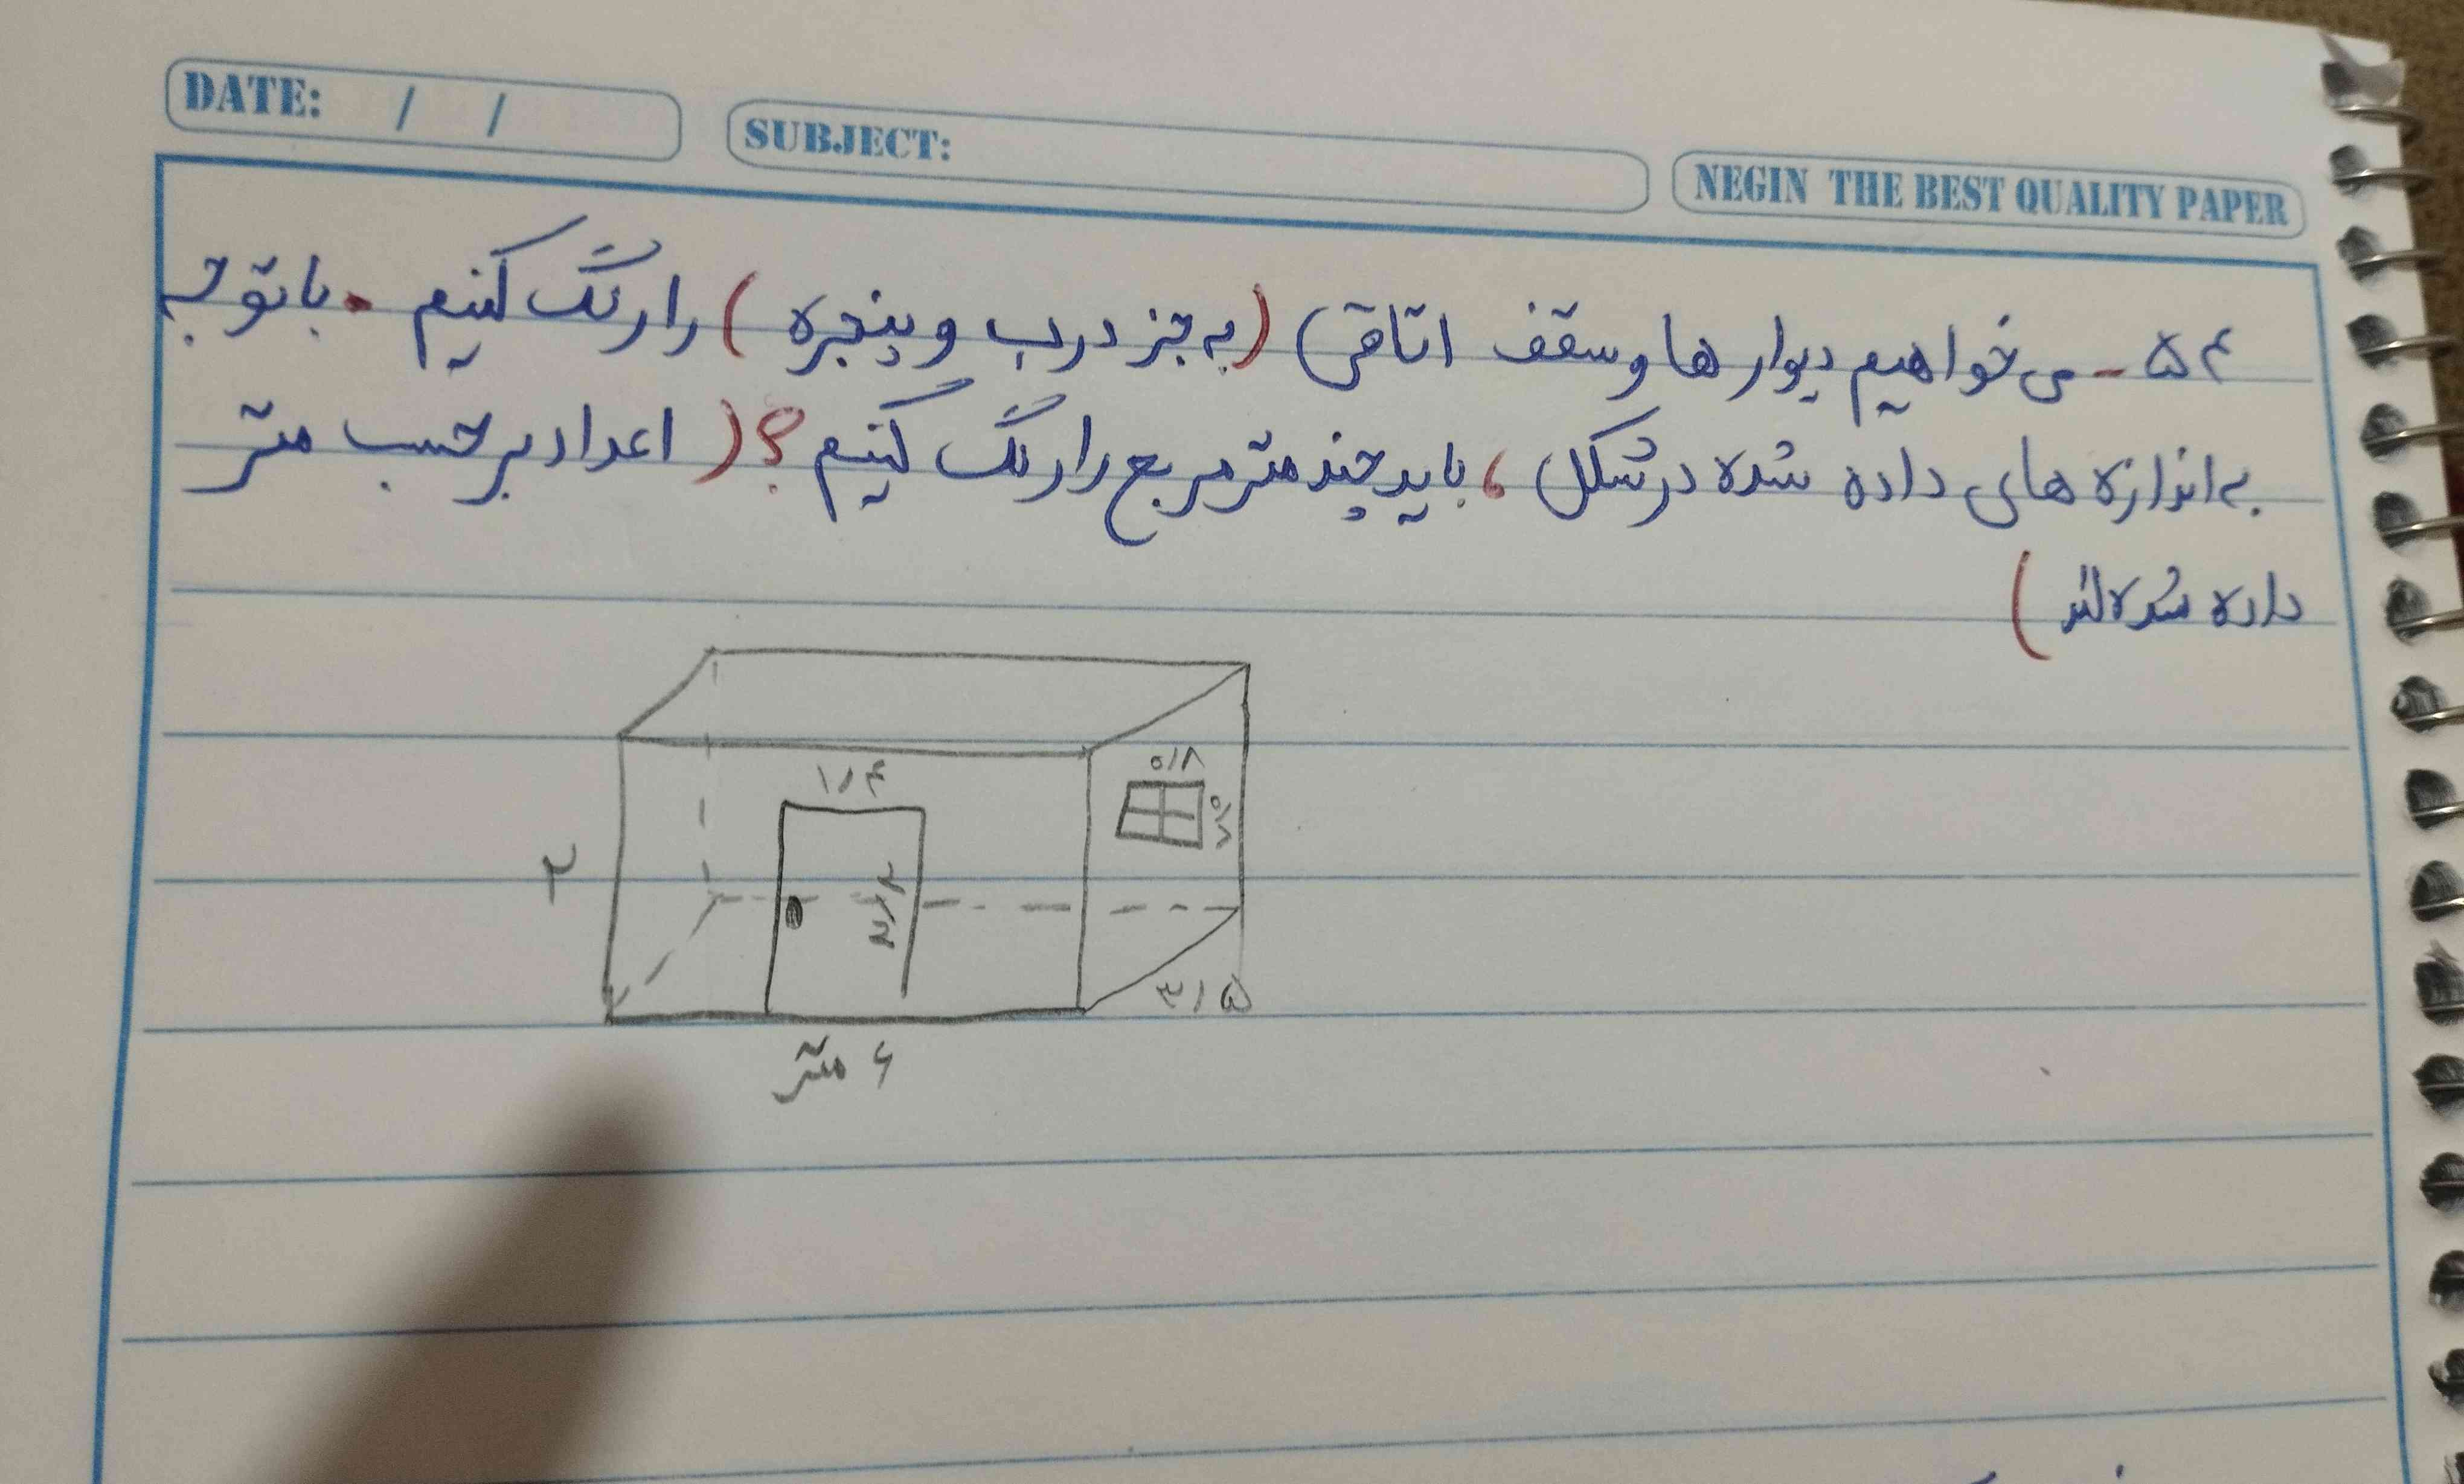 DATE: / /
SUBJECT:
NEGIN THE BEST QUALITY PAPER
۵۴ - می خواهیم دیوار ها و سقف اتاقی (به جز درب و پنجره) را رنگ کنیم. با توجه
به اندازه های داده شده در شکل، باید چند متر مربع را رنگ کنیم؟ (اعداد بر حسب متر
داده شده اند)
۰/۸
۱/۴
۰/۷
۲
۲/۲
۳/۵
۶ متر